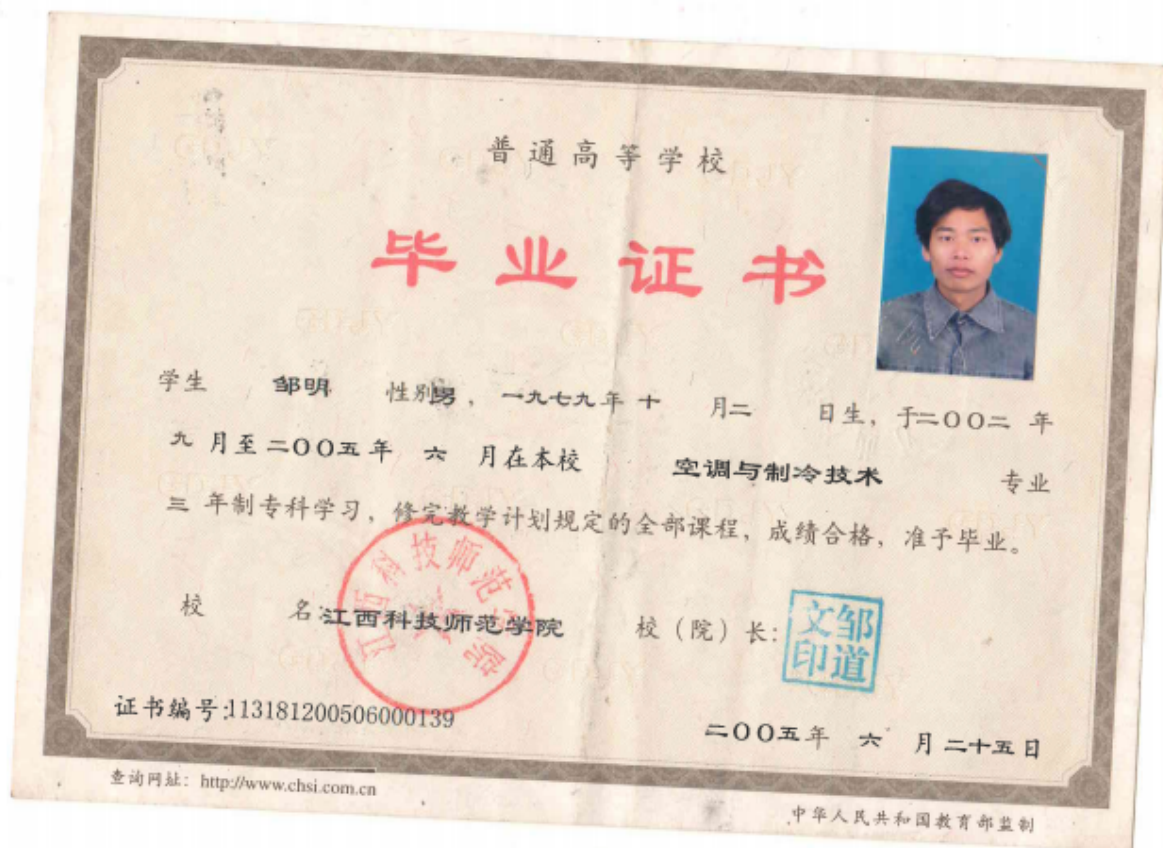 普通高等学校
毕业证书
学生 邹明 性别男，一九七九年十 月二 日生，于二〇〇二 年
九 月至二〇〇五年 六 月在本校 空调与制冷技术 专业
三 年制专科学习，修完教学计划规定的全部课程，成绩合格，准予毕业。
江西科技师范学院
校 名:江西科技师范学院 校（院）长:
邹道文印
证书编号:113181200506000139
二〇〇五年 六 月二十五日
查询网址：http://www.chsi.com.cn
中华人民共和国教育部监制